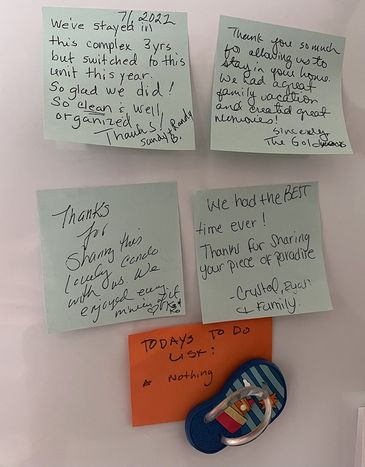 7/2021
We've stayed in
this complex 3yrs
but switched to this
unit this year.
So glad we did!
So clean & well
organized.
Thanks!
Sandy + Randy
B.
Thank you so much
for allowing us to
stay in your home.
We had a great
family vacation
and created great
memories!
Sincerely
The
We had the BEST
time ever!
Thanks for sharing
your piece of paradise
- Crystal,
& Family
Thanks
for
Sharing this
lovely Condo
with us. We
enjoyed every
minute of it,
TODAYS TO DO
LIST:
Nothing